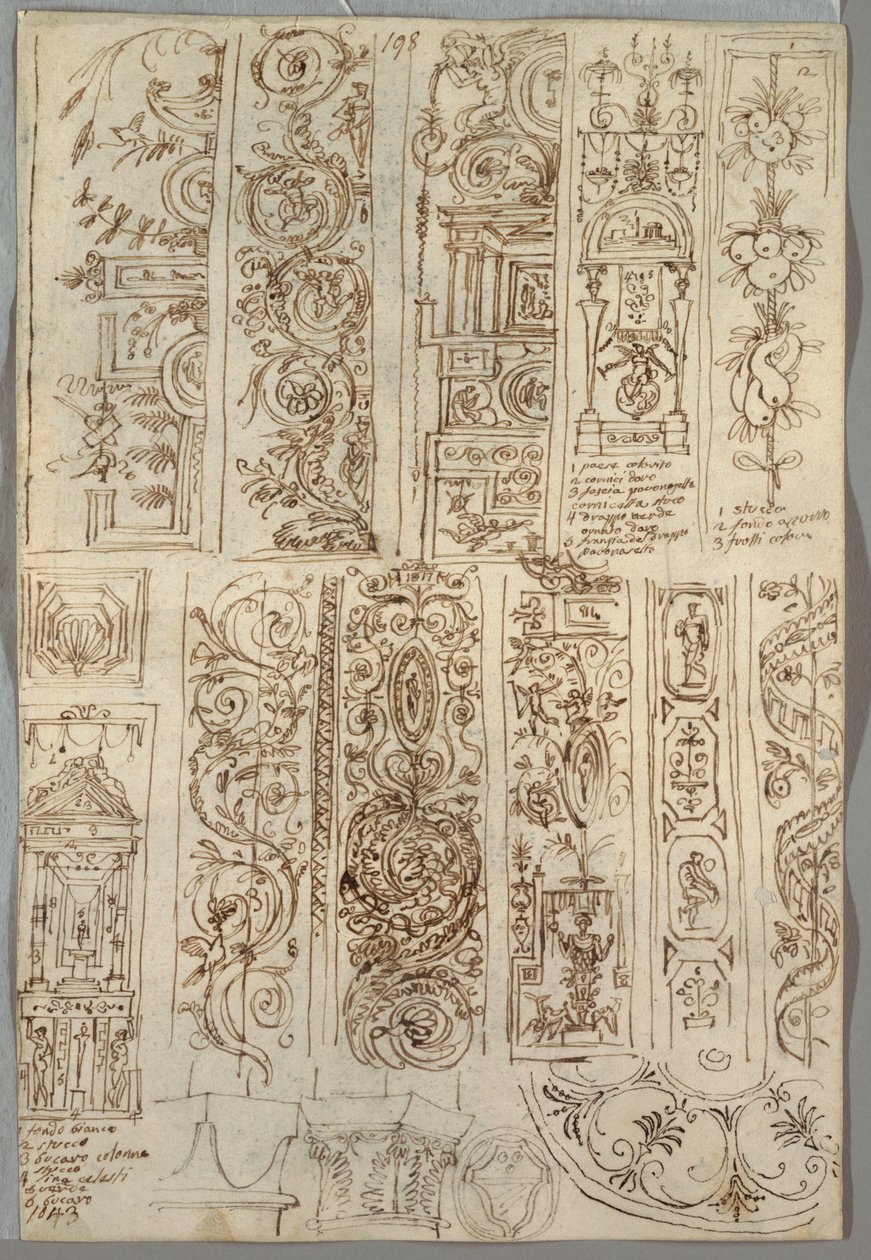 198
1
2
4 1 9 5
1 paese colorito
2 cornici doro
3 fascia pavonazetta
cornicetta stuco
4 drappo verde
ornato doro
5 frangia del drappo
pavonazetto
1 stucco
2 fondo azurro
3 frutti colori
1817
1 fondo bianco
2 stucco
3 bucaro colonne
stucco
4 tine celesti
5 verde
6 bucaro
1043